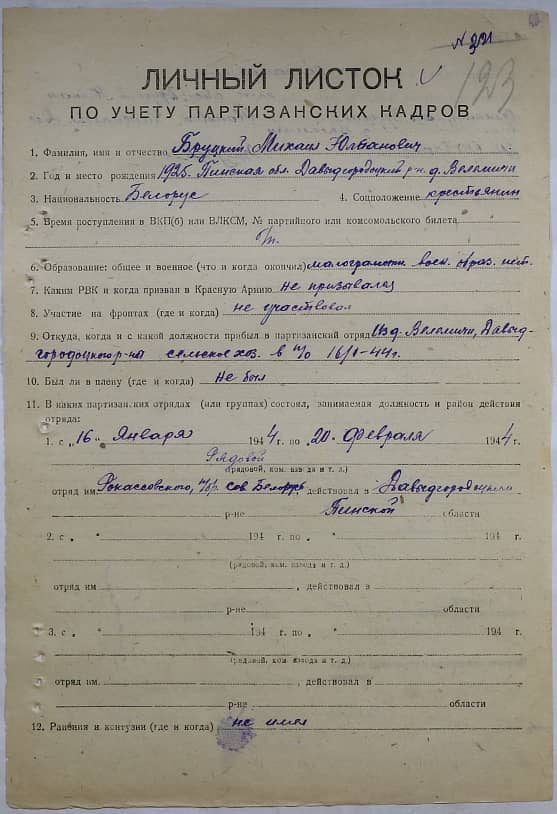 № 221
123
ЛИЧНЫЙ ЛИСТОК
ПО УЧЕТУ ПАРТИЗАНСКИХ КАДРОВ
1. Фамилия, имя и отчество Бруцкий Михаил Юльянович
2. Год и место рождения 1925. Пинская обл. Давыдгородоцкий р-н. д. Велемичи
3. Национальность Белорус 4. Соцположение крестьянин
5. Время поступления в ВКП(б) или ВЛКСМ, № партийного или комсомольского билета
б/п.
6. Образование: общее и военное (что и когда окончил) малограмотн. воен. образ. нет.
7. Каким РВК и когда призван в Красную Армию не призывался
8. Участие на фронтах (где и когда) не участвовал
9. Откуда, когда и с какой должности прибыл в партизанский отряд Из д. Велемичи, Давыд-
городоцкого р-на сельское хоз. в п/о 16/I-44г.
10. Был ли в плену (где и когда) не был
11. В каких партизанских отрядах (или группах) состоял, занимаемая должность и район действия
отряда:
1. с „16“ Января 1944 г. по 20. Февраля 1944 г.
Рядовой
(рядовой, ком. взвода и т. д.)
отряд им. Рокассовского, п/бр. Сов Белорусь действовал в Давыдгородоцком
р-не Пинской области
2. с „ “ 194 г. по „ “ 194 г.
(рядовой, ком. взвода и т. д.)
отряд им , действовал в
р-не области
3. с „ “ 194 г. по „ “ 194 г.
(рядовой, ком. взвода и т. д.)
отряд им. , действовал в
р-не области
12. Ранения и контузии (где и когда) не имел